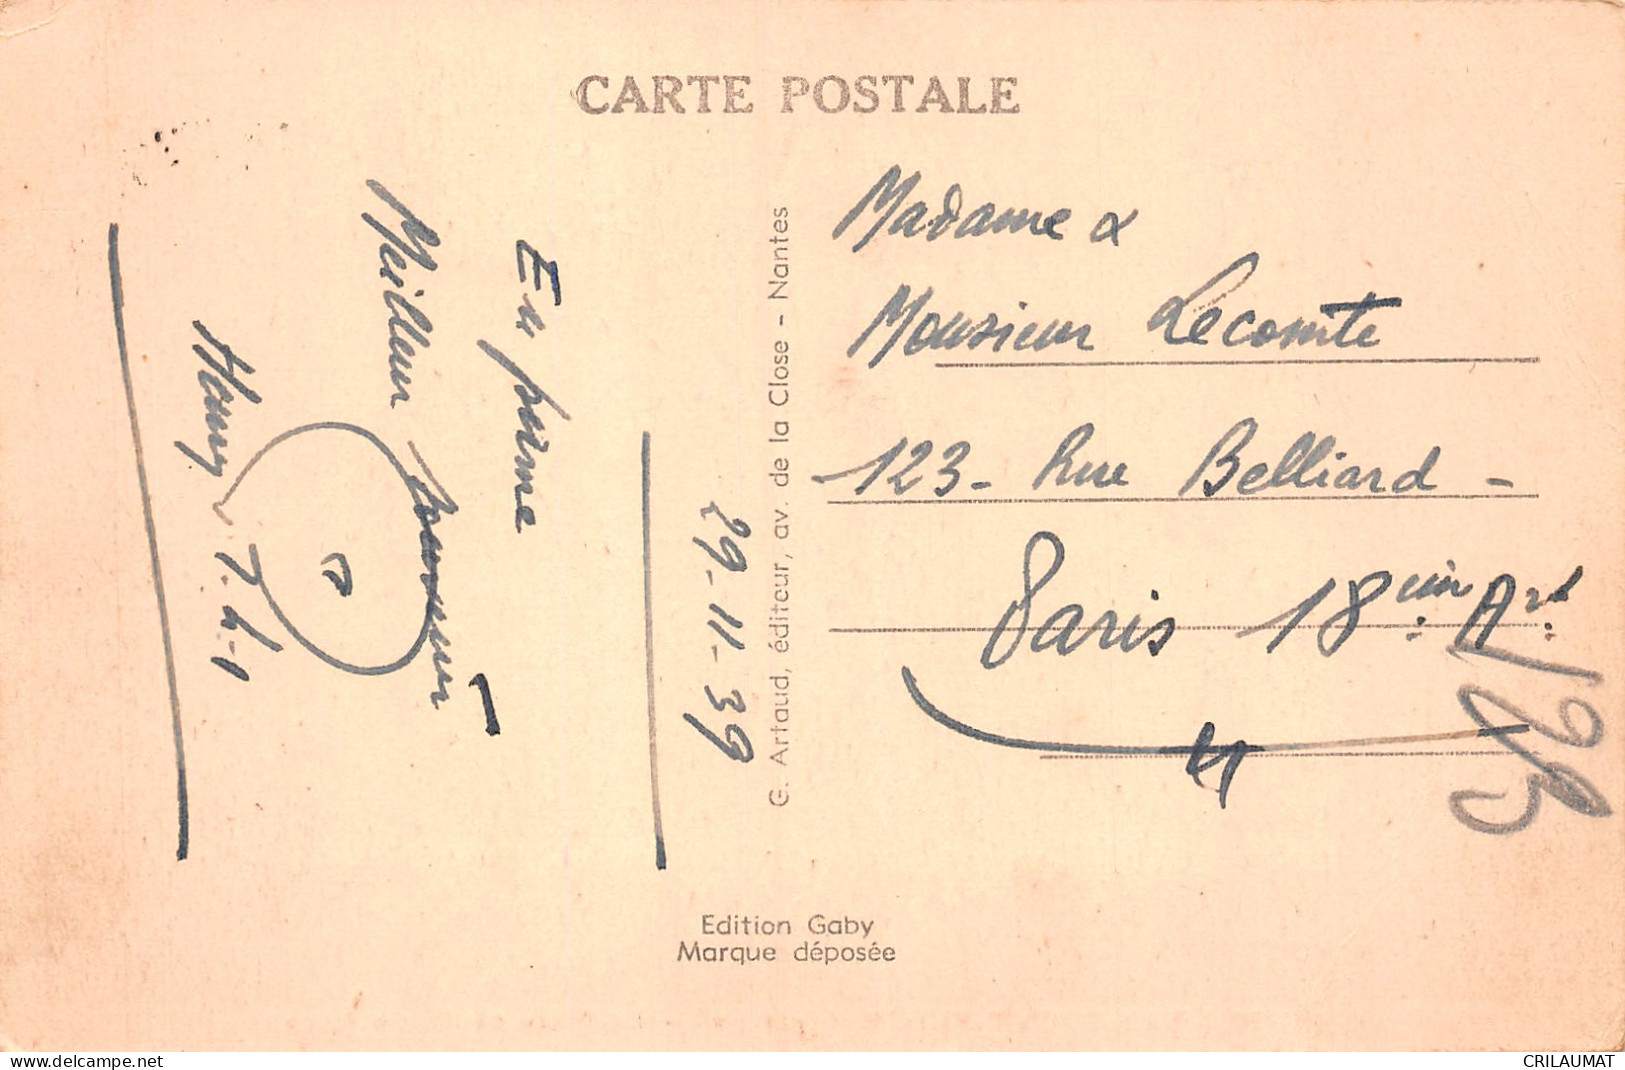 CARTE POSTALE
29-11-39
En prime
Meilleur souvenir
G. Artaud, éditeur, av. de la Close - Nantes
Madame &
Monsieur Lecomte
123- Rue Belliard -
Paris 18
Edition Gaby
Marque déposée
www.delcampe.net
CRILAUMAT